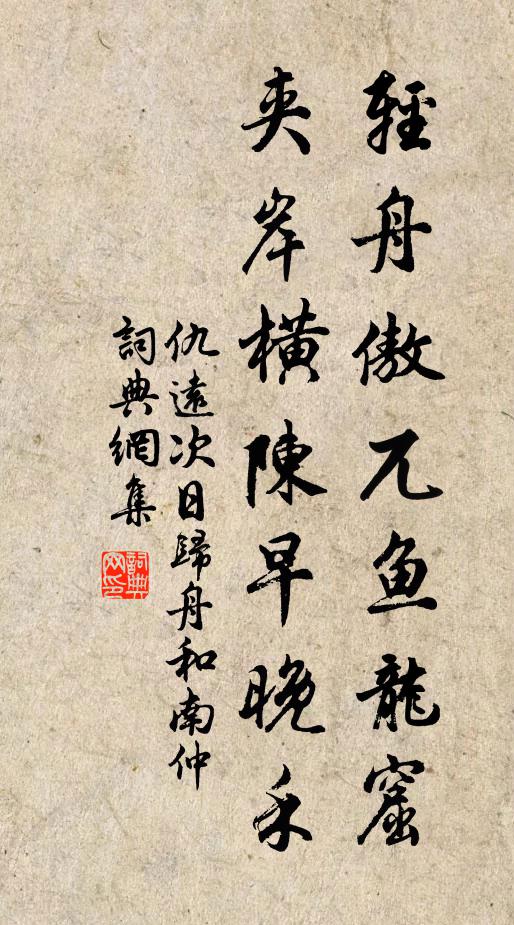 輕舟傲兀鱼龍窟
夾岸橫陳早晚禾
仇遠次日歸舟和南仲
詞典網集
詞典网印